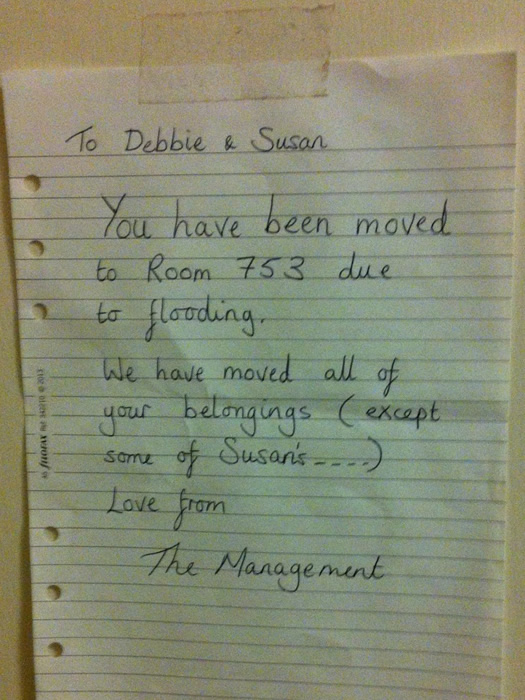 To Debbie & Susan
You have been moved
to Room 753 due
to flooding.
We have moved all of
your belongings (except
some of Susan's ----)
Love from
The Management
filofax
© 2013